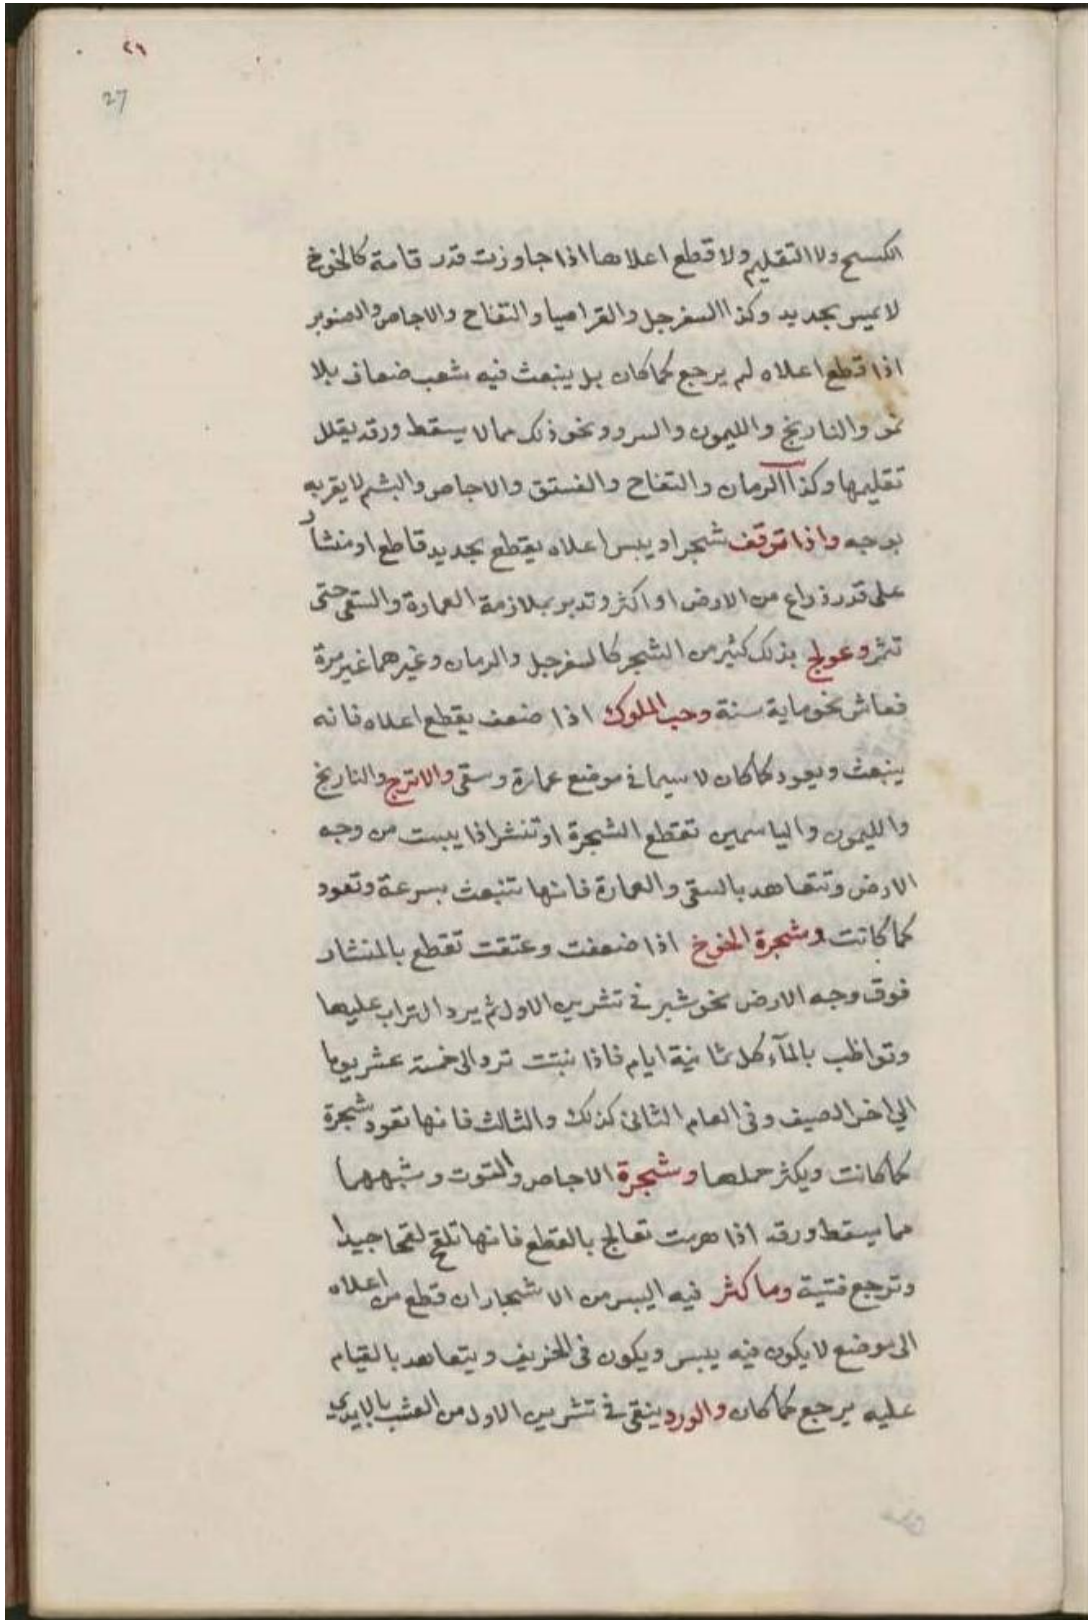 ٢٦
27
الكسح ولا التقليم ولا قطع اعلاها اذا جاوزت قدر قامة كالخوخ
لا يمس بحديد وكذا السفرجل والقراصيا والتفاح والاجاص والصنوبر
اذا قطع اعلاه لم يرجع كما كان بل ينبعث فيه شعب ضعاف بلا
نمو والنارنج والليمون والسرو ونحو ذلك مما لا يسقط ورقه يقلل
تقليمها وكذا الرمان والتفاح والفستق والاجاص والبشم لا يقربه
بوجه واذا توقف شجر او يبس اعلاه يقطع بحديد قاطع او منشار
على قدر ذراع من الارض او اكثر وتدبر بملازمة العمارة والسقى حتى
تثمر وعولج بذلك كثير من الشجر كالسفرجل والرمان وغيرهما غير مرة
فعاش نحو ماية سنة وحب الملوك اذا ضعف يقطع اعلاه فانه
ينبعث ويعود كما كان لا سيما فى موضع عمارة وسقى والاترج والنارنج
والليمون والياسمين تقطع الشجرة او تنشر اذا يبست من وجه
الارض وتتعاهد بالسقى والعمارة فانها تنبعث بسرعة وتعود
كما كانت وشجرة الخوخ اذا ضعفت وعتقت تقطع بالمنشار
فوق وجه الارض نحو شبر فى تشرين الاول ثم يرد التراب عليها
وتواظب بالمآء كل ثمانية ايام فاذا نبتت ترد الى خمسة عشر يوما
الي اخر الصيف وفى العام الثانى كذلك والثالث فانها تعود شجرة
كما كانت ويكثر حملها وشجرة الاجاص والتوت وشبههما
مما يسقط ورقه اذا هرمت تعالج بالقطع فانها تلقح لقحا جيدا
وترجع فتية وما كثر فيه اليبس من الاشجار ان قطع من اعلاه
الى موضع لا يكون فيه يبس ويكون فى الخريف ويتعاهد بالقيام
عليه يرجع كما كان والورد ينقى فى تشرين الاول من العشب بالايدي